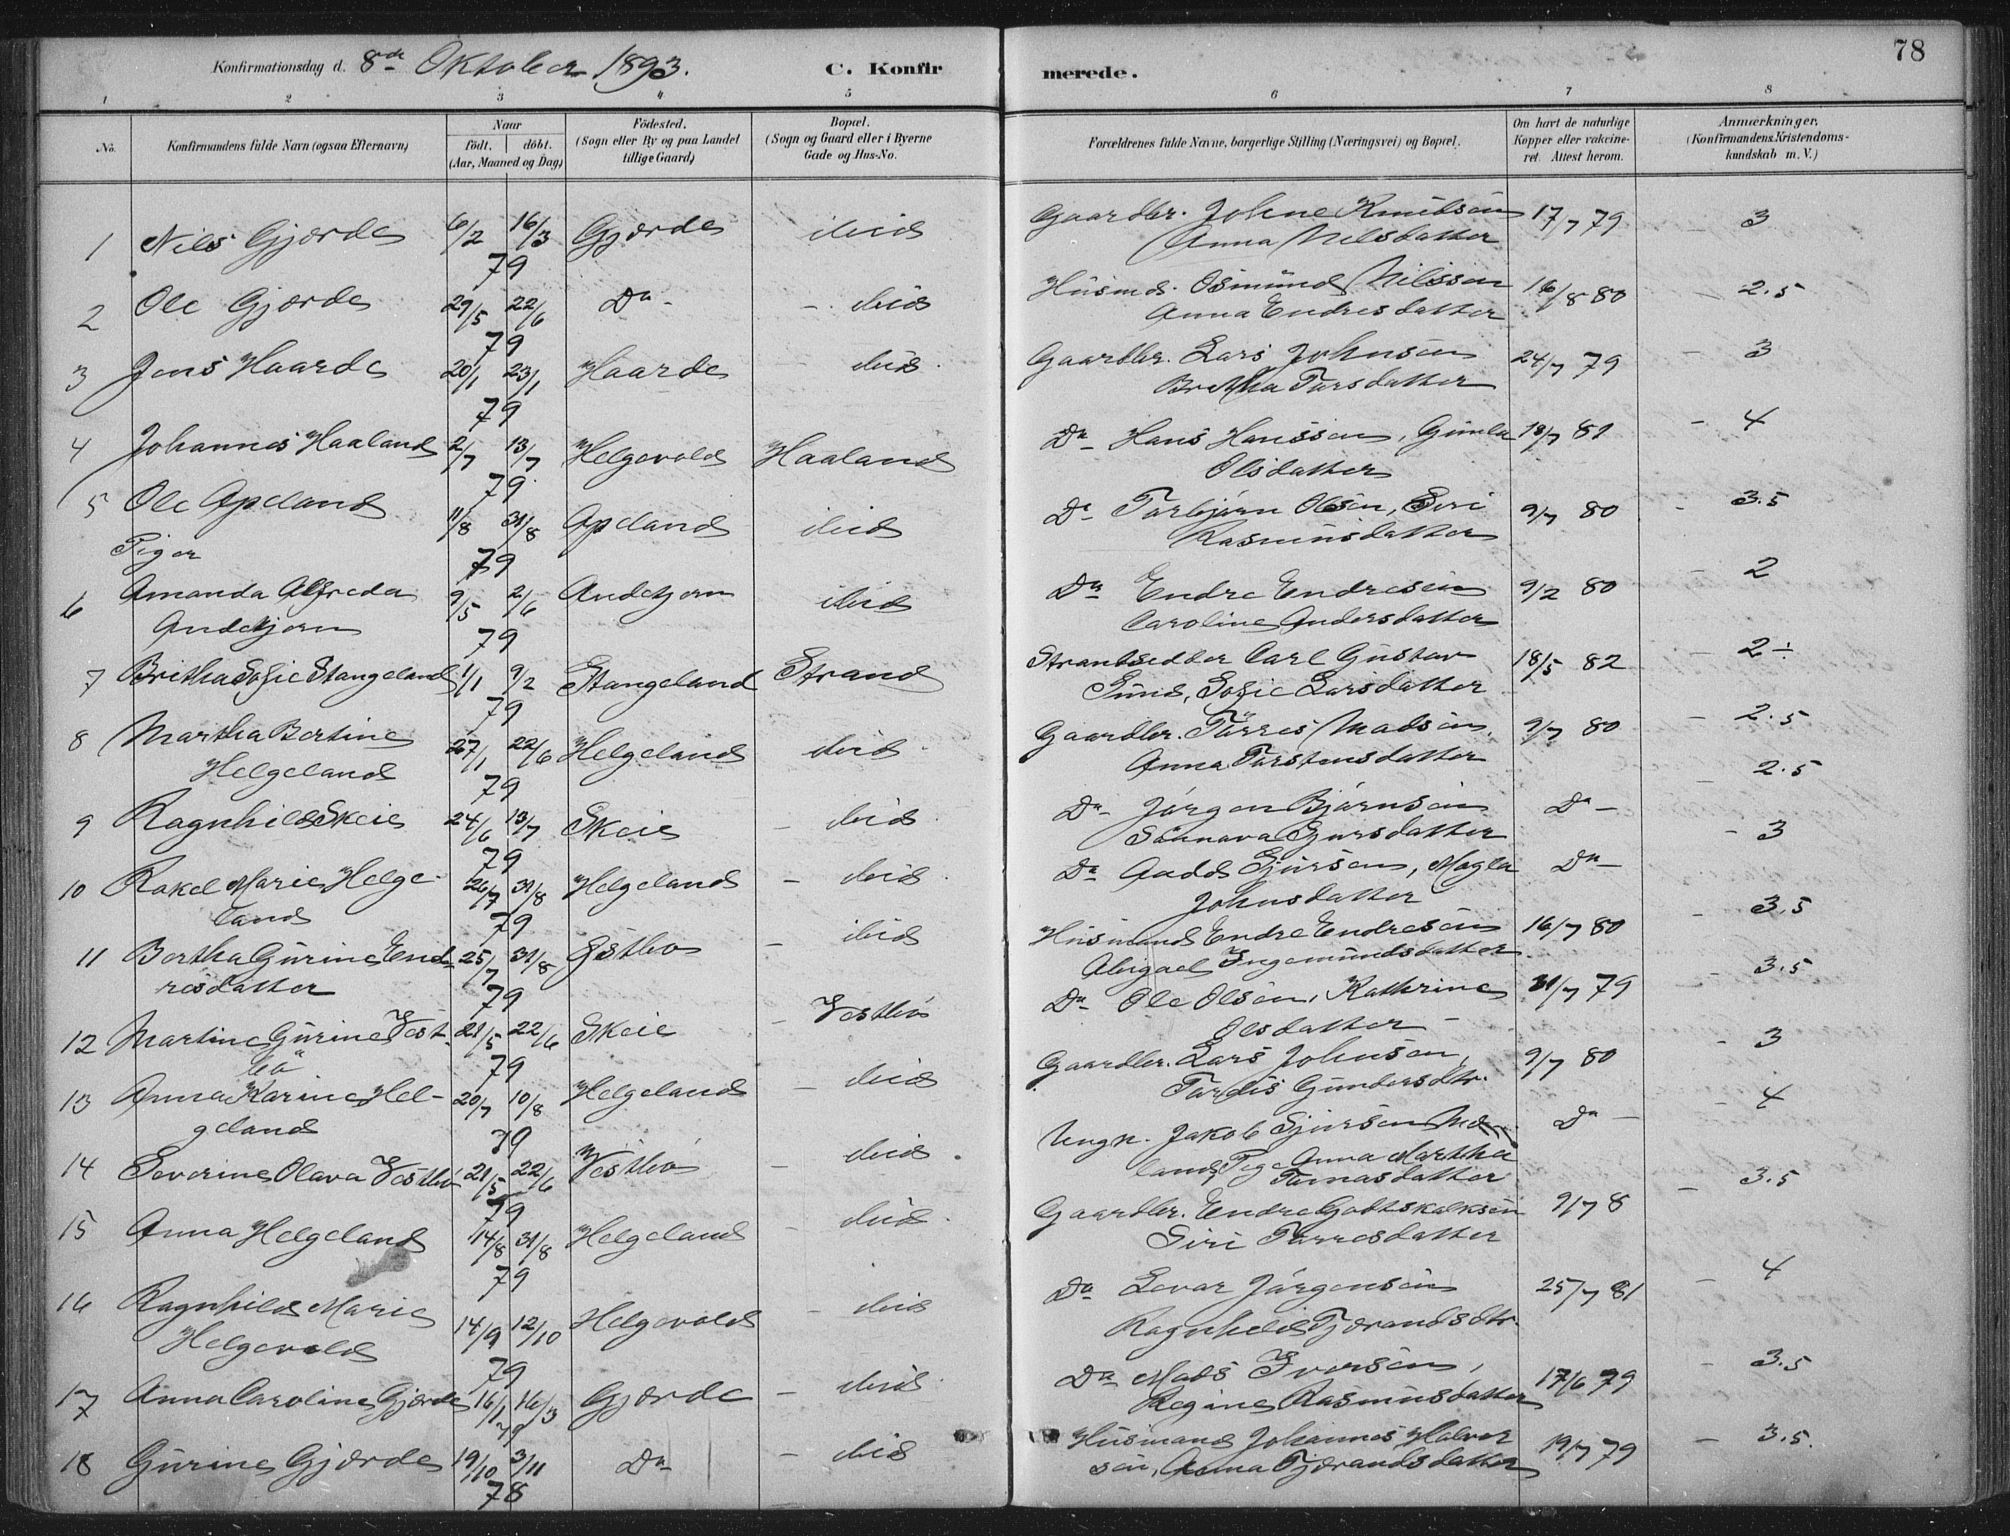 Konfirmationsdag d. 8de Oktober 1893. C. Konfir
merede. 78
1 2 3 4 5 6 7 8
No. Konfirmandens fulde Navn (ogsaa Efternavn) Naar födt. döbt. (Aar, Maaned og Dag) Födested. (Sogn eller By og paa Landet tillige Gaard) Bopæl. (Sogn og Gaard eller i Byerne Gade og Hus-No. Forældrenes fulde Navne, borgerlige Stilling (Næringsvei) og Bopæl. Om havt de naturlige Kopper eller vakcineret. Attest herom. Anmærkninger. (Konfirmandens Kristendomskundskab m. V.)
1 Nils Gjærde 6/2 16/3 79 Gjærde ibid Gaardbr. Johne Knudsen 17/7 79 3
Anna Nilsdatter
2 Ole Gjærde 29/5 22/6 79 Do - ibid Husmd. Osmund Nilssen 16/8 80 - 2.5
Anna Endresdatter
3 Jens Haarde 20/1 23/1 79 Haarde - ibid. Gaardbr. Lars Johnsen 24/7 79 - 3
Bretha Tarsdatter
4 Johannes Haaland 2/7 13/7 79 Helgevold Haaland Do Hans Hanssen, Gunla 18/7 81 - 4
Olsdatter
5 Ole Apeland 11/8 31/8 79 Apeland ibid Do Torbjørn Olsen, Siri 9/7 80 - 3.5
Rasmusdatter
Piger
6 Amanda Alfreda 9/5 2/6 79 Andetjern ibid Do Endre Endresen 9/2 80 2
Andetjern
Caroline Andersdatter
7 Britha Sofie Stangeland 1/1 9/2 79 Stangeland Strand Strandsidder Carl Gustav 18/5 82 - 2÷
Sund, Sofie Larsdatter
8 Martha Bertine 27/1 22/6 79 Helgeland ibid Gaardbr. Tørres Madsen. 9/7 80 - 2.5
Helgeland
Anna Torstensdatter
9 Ragnhild Skeie 24/6 13/7 79 Skeie - ibid Do Jørgen Bjørnsen Do - - 2.5
Sønnava Sjursdatter
10 Rakel Marie Helge- 26/7 31/8 79 Helgeland - ibid. Do Aadd Sjursen, Magla Do - - 3
land
Johnsdatter
11 Bertha Gurine End- 25/7 31/8 79 Østbø - ibid Husmand Endre Endresen 16/7 80 - 3.5
resdatter
Abigael Ingemundsdatter
12 Martine Gurine Vest- 21/5 22/6 79 Skeie - Vestbø Do Ole Olsen, Kathrine 31/7 79 - 3.5
bø
Olsdatter
13 Anna Karine Hel- 20/7 10/8 79 Helgeland - ibid Gaardbr. Lars Johnsen, 9/7 80 - 3
geland
Tordis Gundersdtr.
14 Severine Olava Vestbø 21/5 22/6 79 Vestbø - ibid. Ungk. Jakob Sjursen Do - - 4
land, Pige Anna Martha
Tomasdatter
15 Anna Helgeland 14/8 31/8 79 Helgeland - ibid. Gaardbr. Endre Godtskalksen 9/7 8 - 3.5
Siri Tørresdatter
16 Ragnhild Marie 14/9 12/10 79 Helgevold - ibid Do Sevar Jørgensen 25/7 81 - 4
Helgevold
Ragnhild Tjerandsdtr.
17 Anna Caroline Gjærde 16/1 16/3 79 Gjærde - ibid. Do Mads Iversen, 17/6 79 - 3.5
Regine Rasmusdatter
18 Gurine Gjærde 19/10 3/11 78 Do - ibid Husmand Johannes Halvor 19/7 79 - 3.5.
sen, Anna Tjerandsdatter